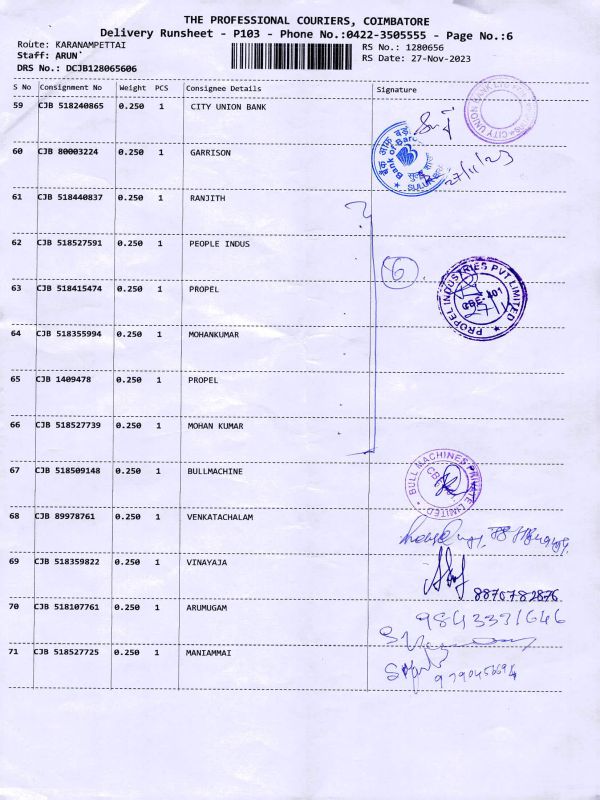 THE PROFESSIONAL COURIERS, COIMBATORE
Delivery Runsheet - P103 - Phone No.:0422-3505555 - Page No.:6
Route: KARANAMPETTAI
RS No.: 1280656
Staff: ARUN
RS Date: 27-Nov-2023
DRS No.: DCJB128065606
S No Consignment No Weight PCS Consignee Details Signature
59 CJB 518240865 0.250 1 CITY UNION BANK
CITY UNION BANK LTD
60 CJB 80003224 0.250 1 GARRISON
Bank of Baroda
27/11/23
61 CJB 518440837 0.250 1 RANJITH
62 CJB 518527591 0.250 1 PEOPLE INDUS
6
63 CJB 518415474 0.250 1 PROPEL
PROPEL INDUSTRIES PVT LIMITED
CBE-401
64 CJB 518355994 0.250 1 MOHANKUMAR
65 CJB 1409478 0.250 1 PROPEL
66 CJB 518527739 0.250 1 MOHAN KUMAR
67 CJB 518509148 0.250 1 BULLMACHINE
BULL MACHINES PRIVATE LIMITED
68 CJB 89978761 0.250 1 VENKATACHALAM
69 CJB 518359822 0.250 1 VINAYAJA
8870782876
70 CJB 518107761 0.250 1 ARUMUGAM
9843331646
71 CJB 518527725 0.250 1 MANIAMMAI